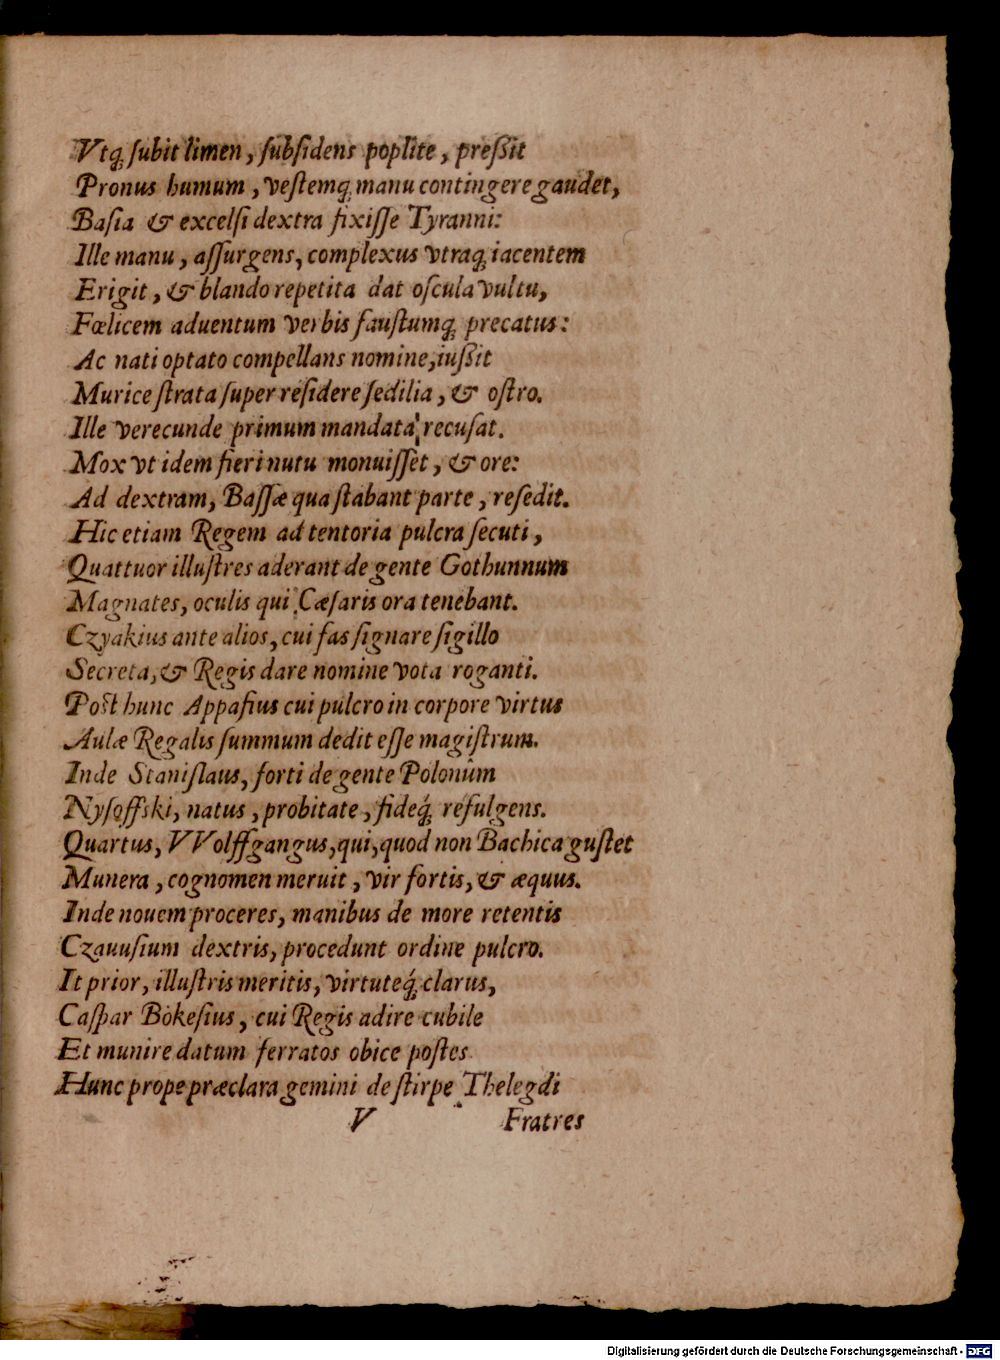 Vtq́; ſubit limen, ſubſidens poplite, preſſit
Pronus humum, veſtemq́; manu contingere gaudet,
Baſia & excelſi dextra fixiſſe Tyranni:
Ille manu, aſſurgens, complexus vtraq́; iacentem
Erigit, & blando repetita dat oſcula vultu,
Fœlicem aduentum verbis fauſtumq́; precatus:
Ac nati optato compellans nomine, iuſſit
Murice ſtrata ſuper reſidere ſedilia, & oſtro.
Ille verecunde primum mandata recuſat.
Mox vt idem fieri nutu monuiſſet, & ore:
Ad dextram, Baſſæ qua ſtabant parte, reſedit.
Hic etiam Regem ad tentoria pulcra ſecuti,
Quattuor illuſtres aderant de gente Gothunnum
Magnates, oculis qui Cæſaris ora tenebant.
Czyakius ante alios, cui fas ſignare ſigillo
Secreta, & Regis dare nomine vota roganti.
Poſt hunc Appaſius cui pulcro in corpore virtus
Aulæ Regalis ſummum dedit eſſe magiſtrum.
Inde Staniſlaus, forti de gente Polonûm
Nyſoffski, natus, probitate, fideq́; refulgens.
Quartus, VVolffgangus, qui, quod non Bachica guſtet
Munera, cognomen meruit, vir fortis, & æquus.
Inde nouem proceres, manibus de more retentis
Czauuſium dextris, procedunt ordine pulcro.
It prior, illuſtris meritis, virtuteq́; clarus,
Caſpar Bòkeſius, cui Regis adire cubile
Et munire datum ferratos obice poſtes.
Hunc prope præclara gemini de ſtirpe Thelegdi
V Fratres
Digitalisierung gefördert durch die Deutsche Forschungsgemeinschaft - DFG